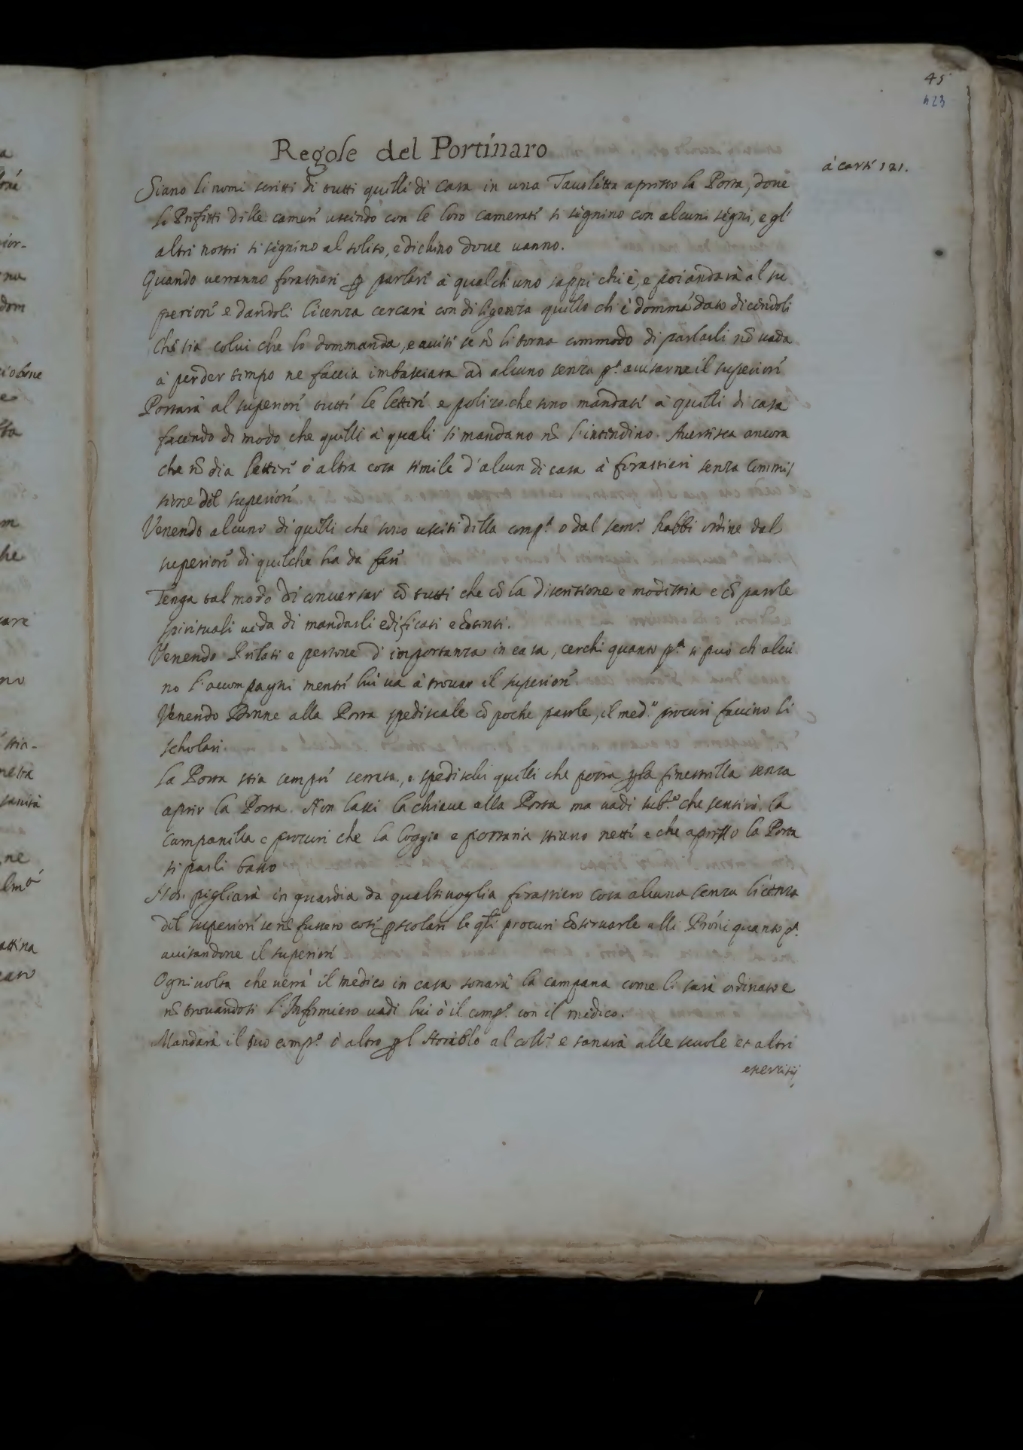 45
423
Regole del Portinaro
à carte 121.
Siano li nomi scritti di tutti quelli di casa in una Tauoletta apresso la Porta, doue
li Prefetti delle camere uscindo con le loro camerate si segnino con alcuni segni, e gl'
altri nostri si segnino al solito, e dichino doue uanno.
Quando uerranno forastieri p parlare à qualch'uno sappi chi è, e poi andarà al su
periore e dandoli licenza cercarà con diligenza quello ch'è domandato dicendoli
chi sia colui che lo dommanda, e auisi se nõ li torna commodo di parlarli nõ uada
à perder tempo ne faccia imbasciata ad alcuno senza pª auisarne il superiore
Portarà al superiore tutte le lettere e polize che sono mandate à quelli di casa
facendo di modo che quelli à quali si mandano nõ l'intendino. Auertisca ancora
che nõ dia lettere ò altra cosa simile d'alcun di casa à forastieri senza commis
sione del superiore
Venendo alcuno di quelli che sono usciti della compª o dal semº habbi ordine dal
superiore di quelche ha da fare
Tenga tal modo di conuersar cõ tutti che cõ la discretione e modestia e cõ parole
spirituali ueda di mandarli edificati e contenti.
Venendo Prelati e persone d'importanza in casa, cerchi quanto pª si può ch'alcu
no l'accompagni mentre lui uà à trouar il superiore.
Venendo Donne alla Porta spediscale cõ poche parole, il medº procuri faccino li
scholari.
La Porta stia sempre serrata, e spedischi quelli che potrà p la finestrella senza
aprir la Porta. Non lassi la chiaue alla Porta ma uadi subº che sentirà la
campanella e procuri che la loggia e portaria stiano nette e che apresso la Porta
si parli basso
Non pigliarà in guardia da qualsiuoglia forastiero cosa alcuna senza licenza
del superiore se nõ fussero cose p scolari le qli procuri cõseruarle alli Proni quanto pª
auisandone il superiore
Ogni uolta che uerrà il medico in casa sonarà la campana come li sarà ordinato e
nõ trouandosi l'Infermiero uadi lui ò il compº con il medico.
Mandarà il suo compº ò altro p l' al collº e sonarà alle scuole et altri
esercitij